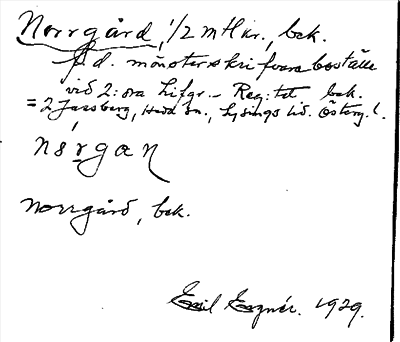 Norrgård, 1/2 mtl kr., bek.
f.d. mönsterskrifvareboställe
vid 2:dra Lifgr. Reg:tet bek.
= 2 Jursberg, Heda sn., Lysings hd. Österg. l.
Norrgård, bek.
Emil 1929.